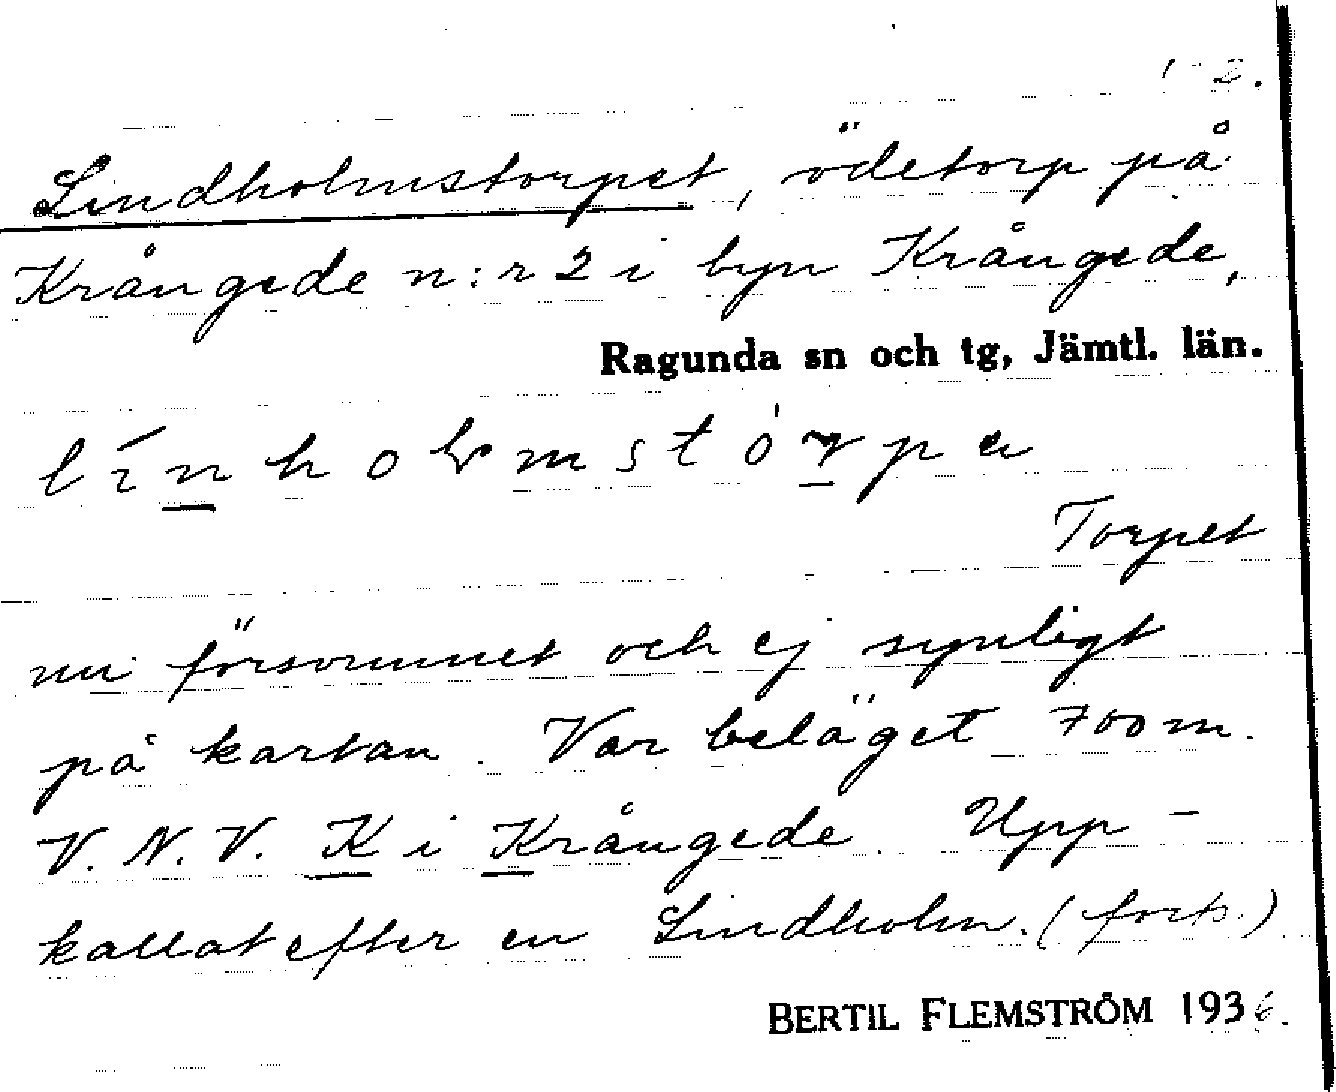 Lindholmstorpet, ödetorp på
Krångede n:r 2 i byn Krångede,
Ragunda sn och tg, Jämtl. län.
Torpet
nu försvunnet och ej synligt
på kartan. Var beläget 700 m.
V.N.V. K i Krångede. Upp-
kallat efter en Lindholm. (forts.)
BERTIL FLEMSTRÖM 1936.